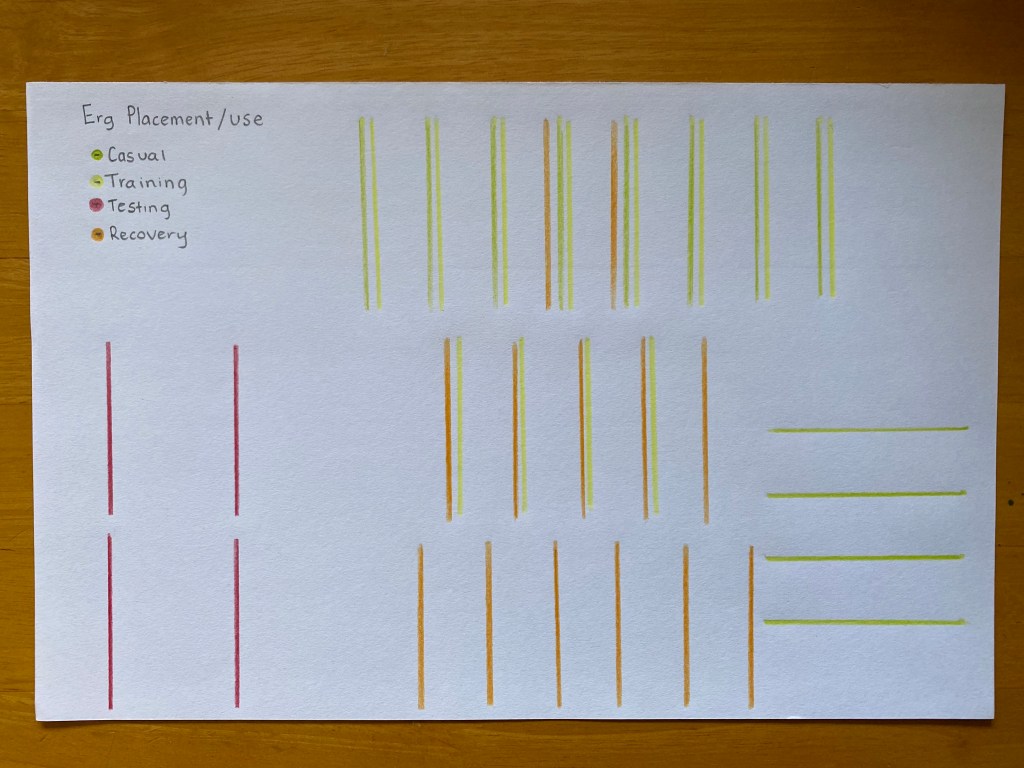 Erg Placement/use
Casual
Training
Testing
Recovery